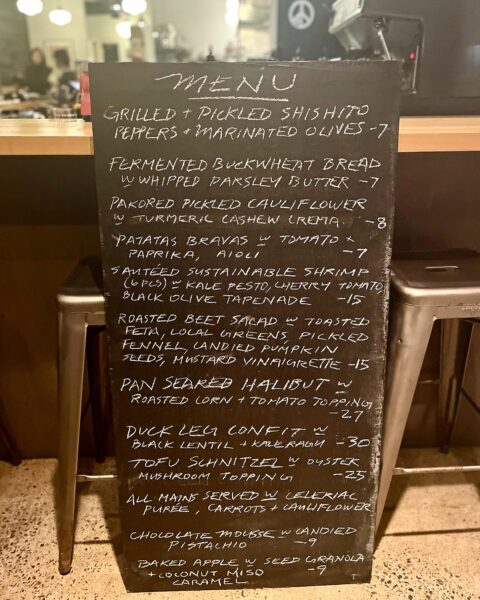 MENU
GRILLED + PICKLED SHISHITO
PEPPERS + MARINATED OLIVES -7
FERMENTED BUCKWHEAT BREAD
W WHIPPED PARSLEY BUTTER -7
PAKORED PICKLED CAULIFLOWER
W TURMERIC CASHEW CREMA -8
PATATAS BRAVAS W TOMATO +
PAPRIKA, AIOLI -7
SAUTÉED SUSTAINABLE SHRIMP
(6 PCS) W KALE PESTO, CHERRY TOMATO,
BLACK OLIVE TAPENADE -15
ROASTED BEET SALAD W TOASTED
FETA, LOCAL GREENS, PICKLED
FENNEL, CANDIED PUMPKIN
SEEDS, MUSTARD VINAIGRETTE -15
PAN SEARED HALIBUT W
ROASTED CORN + TOMATO TOPPING
-27
DUCK LEG CONFIT W
BLACK LENTIL + KALE RAGU -30
TOFU SCHNITZEL W OYSTER
MUSHROOM TOPPING -25
ALL MAINS SERVED W CELERIAC
PURÉE, CARROTS + CAULIFLOWER
CHOCOLATE MOUSSE W CANDIED
PISTACHIO -9
BAKED APPLE W SEED GRANOLA
+ COCONUT MISO -9
CARAMEL